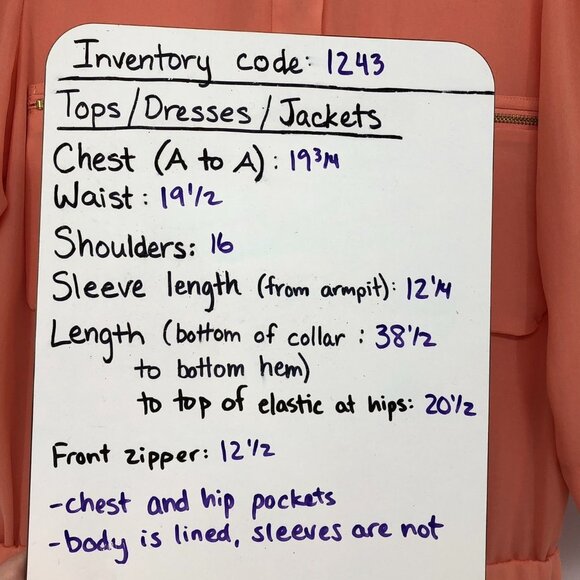 Inventory code: 1243
Tops/Dresses/Jackets
Chest (A to A): 19 3/4
Waist: 19 1/2
Shoulders: 16
Sleeve length (from armpit): 12 1/4
Length (bottom of collar : 38 1/2
to bottom hem)
to top of elastic at hips: 20 1/2
Front zipper: 12 1/2
-chest and hip pockets
-body is lined, sleeves are not